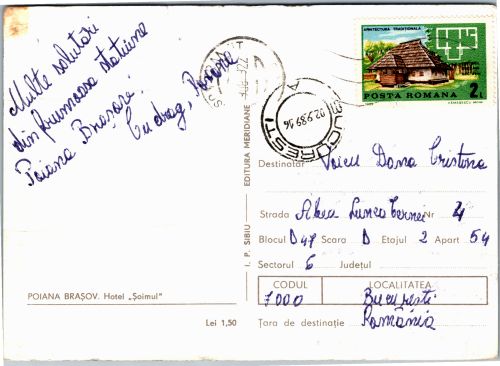 Multe salutări
din frumoasa stațiune
Poiana Brașov!
Cu drag,
ARHITECTURA TRADIȚIONALĂ
POSTA ROMANA 2L
BUCUREȘTI
A
02.9.89.16
EDITURA MERIDIANE
I. P. SIBIU
Destinatar Voicu Dana Cristina
Strada Aleea Lunca Cernei Nr 4
Blocul D47 Scara D Etajul 2 Apart 54
Sectorul 6 Județul
CODUL LOCALITATEA
7000 București
Țara de destinație România
POIANA BRAȘOV. Hotel „Șoimul"
Lei 1,50